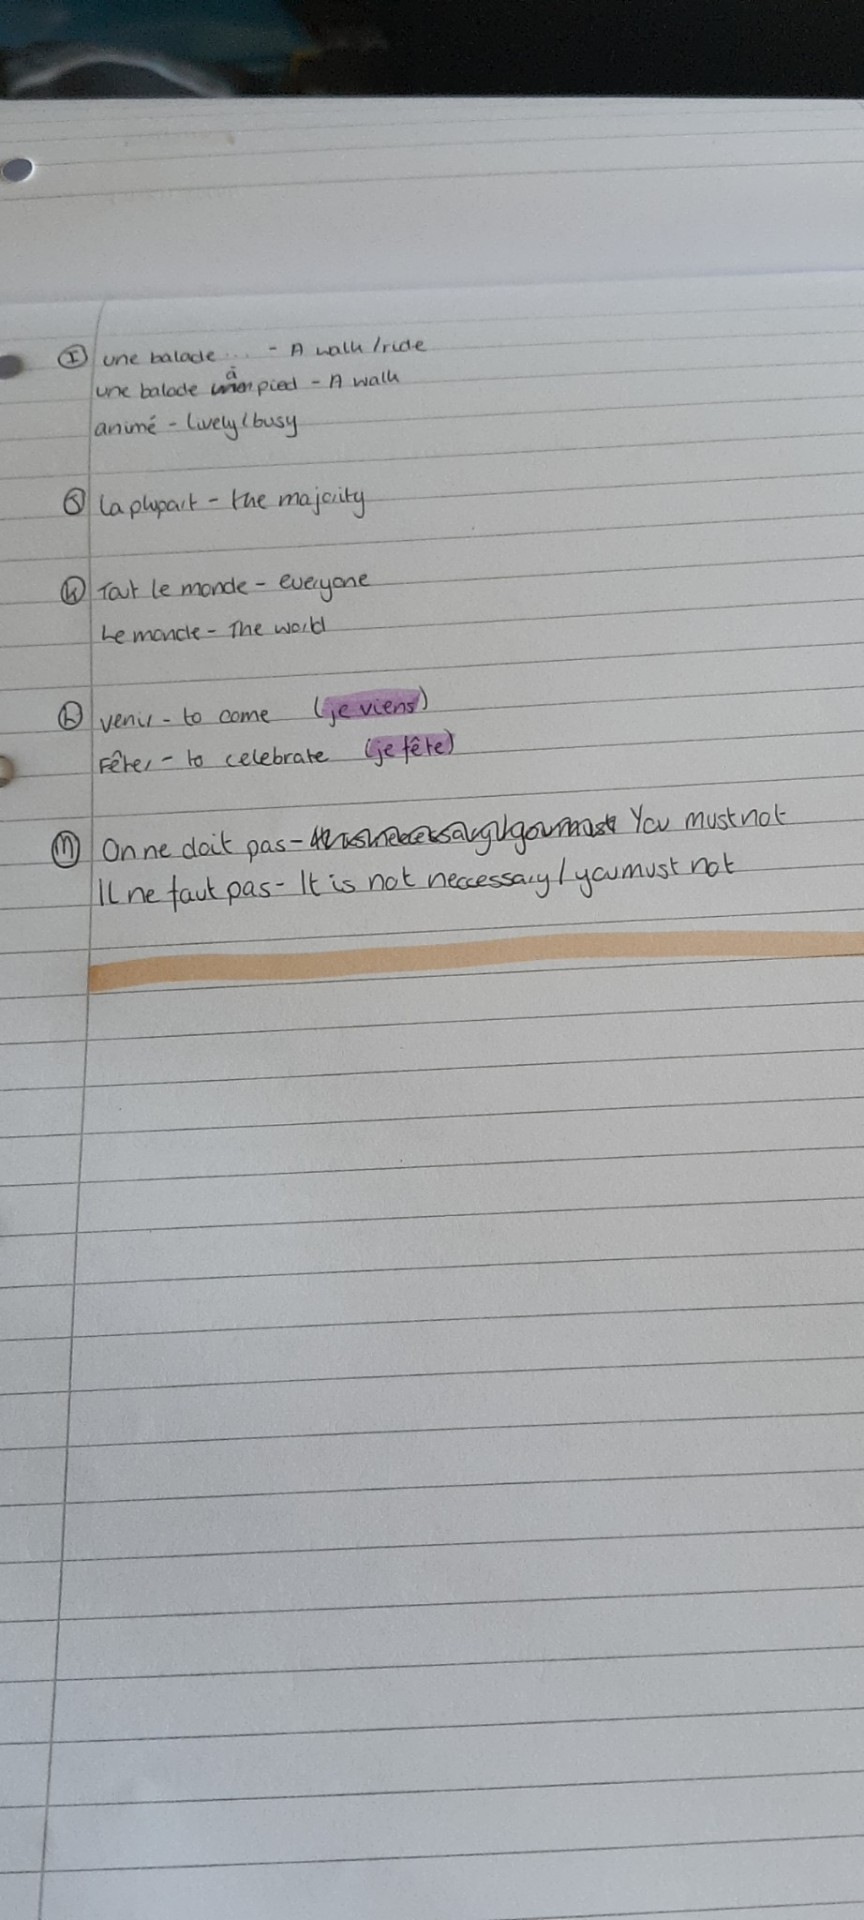 Ⓘ une balade ... - A walk/ride
une balade à pied - A walk
animé - lively/busy
Ⓢ La plupart - the majority
Tout le monde - everyone
Le monde - The world
venir - to come (je viens)
Fêter - to celebrate (je fête)
Ⓜ On ne doit pas - You must not
Il ne faut pas - It is not neccessary / you must not